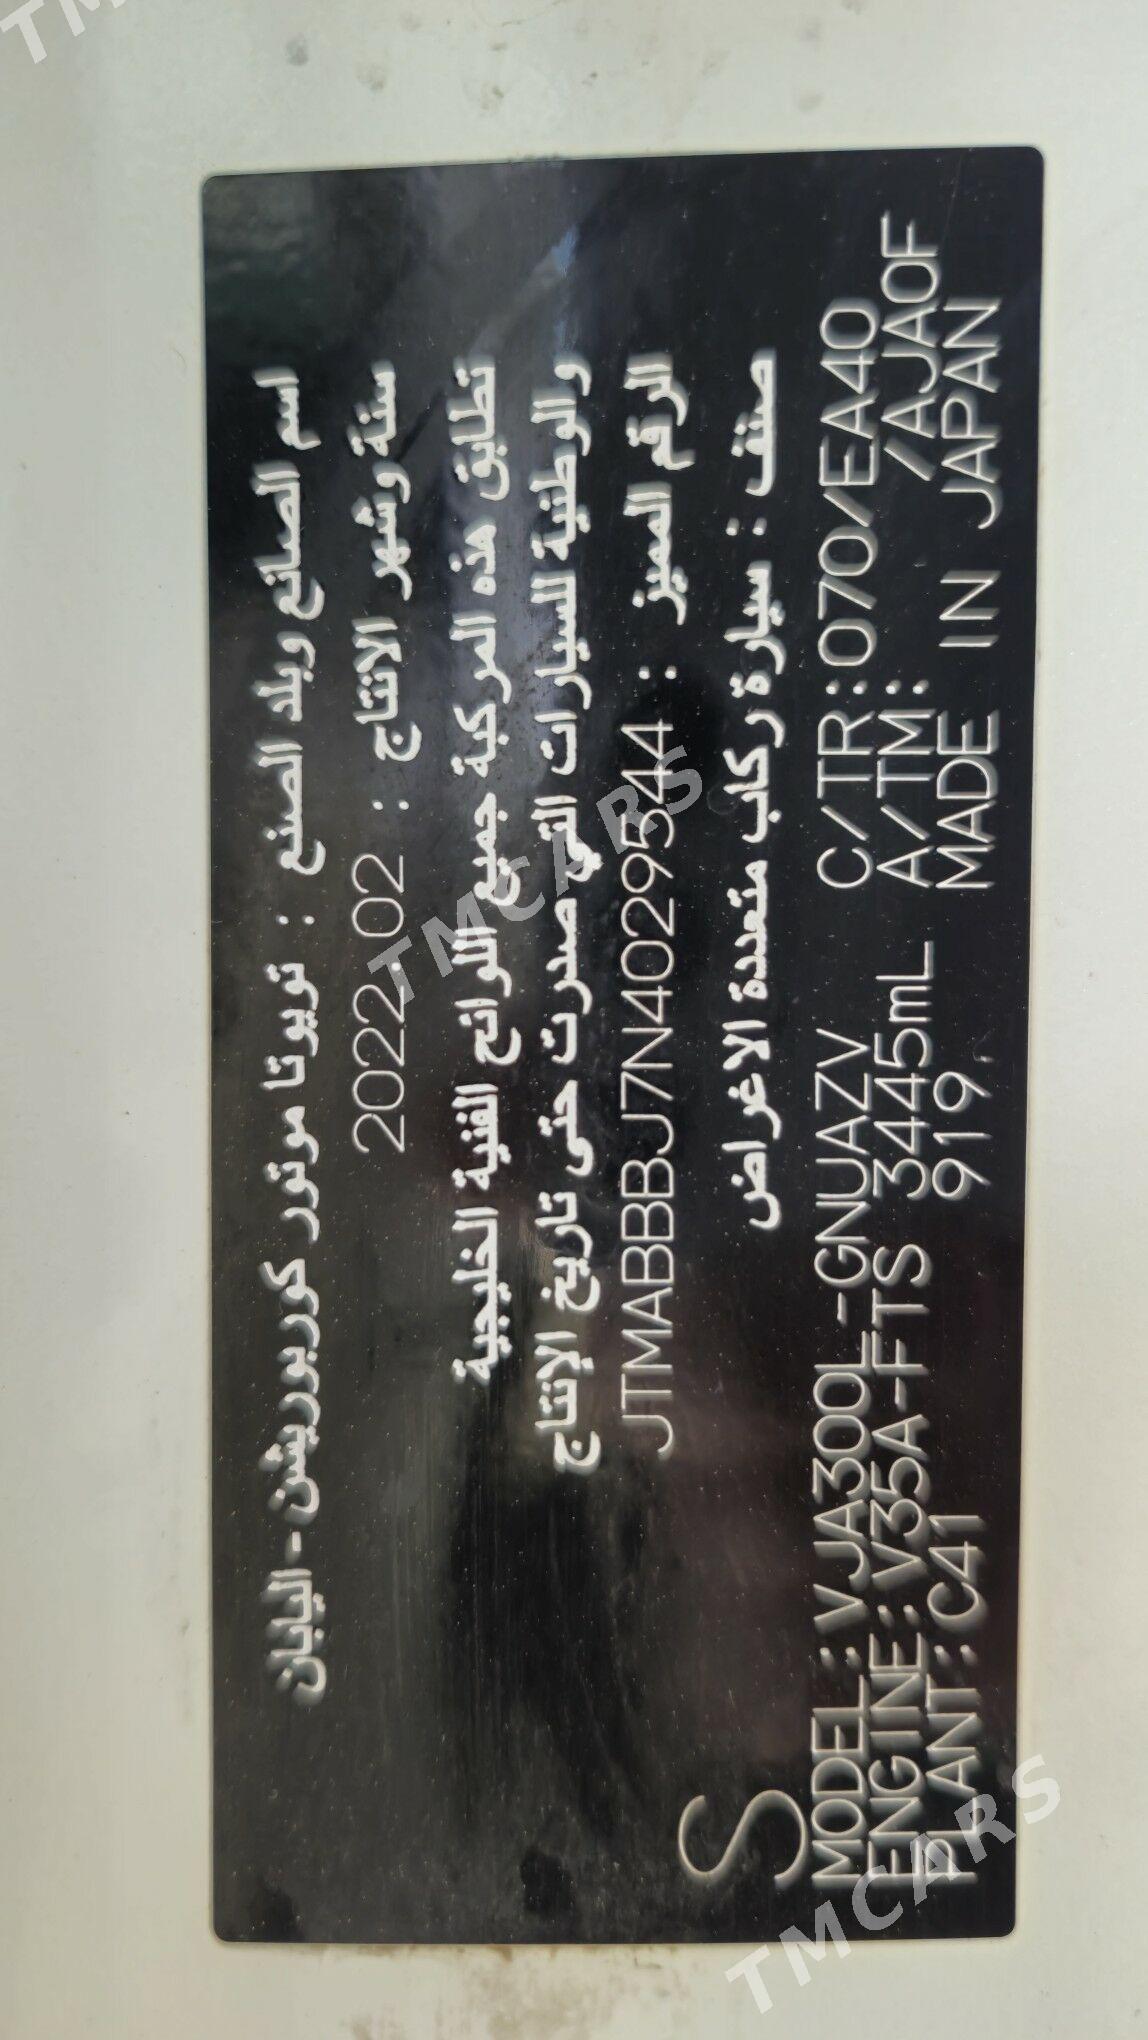 اسم الصانع وبلد الصنع : تويوتا موتور كوربوريشن - اليابان
سنة وشهر الانتاج : 2022.02
تطابق هذه المركبة جميع اللوائح الفنية الخليجية
والوطنية للسيارات التي صدرت حتى تاريخ الإنتاج
الرقم المميز : JTMABBBJ7N4029544
صنف : سيارة ركاب متعددة الاغراض
S
MODEL : VJA300L-GNUAZV C/TR : 070/EA40
ENGINE : V35A-FTS 3445mL A/TM : /AJA0F
PLANT : C41 919 MADE IN JAPAN
TMCARS
TMCARS
TM